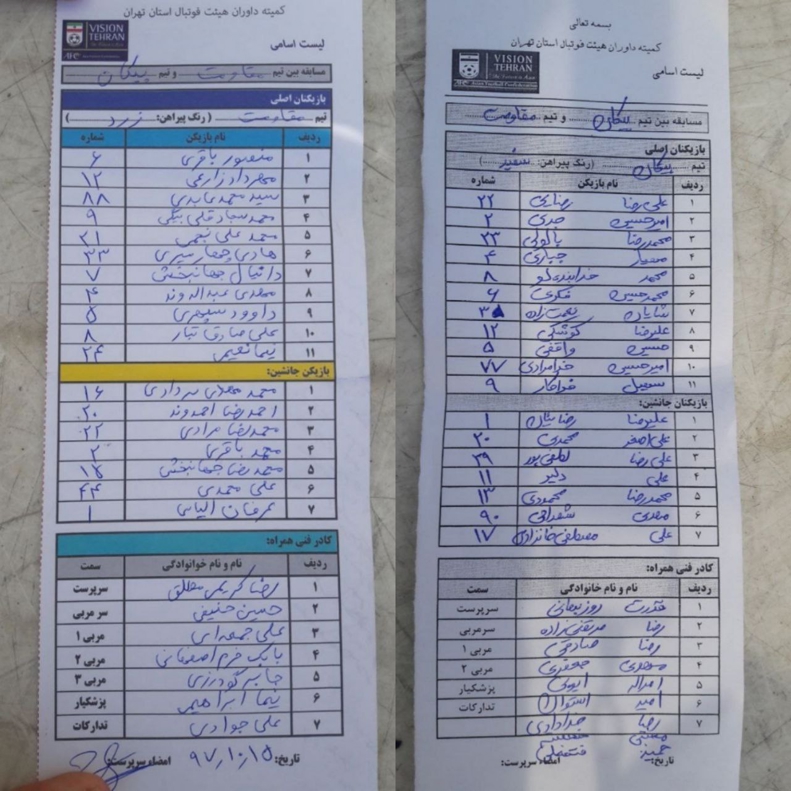 کمیته داوران هیئت فوتبال استان تهران
VISION
TEHRAN
AFC
لیست اسامی
مسابقه بین تیم مقاومت و تیم پیکان
بازیکنان اصلی
تیم مقاومت ( رنگ پیراهن: زرد )
ردیف نام بازیکن شماره
۱ منصور باقری ۶
۲ مهرداد زارعی ۱۲
۳ سید محمد عابدی ۸۸
۴ محمد سجاد قلی بیگی ۹
۵ محمد علی نجمی ۲۱
۶ هادی ۳۳
۷ دانیال جهانبخش ۷
۸ مهدی عبداله وند ۴
۹ داوود سپهری ۵
۱۰ علی صادق تبار ۸
۱۱ نیما نعیمی ۲۴
بازیکن جانشین:
۱ محمد مهدی سرداری ۱۶
۲ احمدرضا احمدوند ۲۰
۳ محمدرضا مرادی ۲۲
۴ محمد باقری ۲
۵ محمدرضا جهانبخش ۱۴
۶ علی محمدی ۴۴
۷ عرفان الیاسی ۱
کادر فنی همراه:
ردیف نام و نام خوانوادگی سمت
۱ رضا کریمی مطلق سرپرست
۲ حسین حنیفی سر مربی
۳ علی جمعه‌ای مربی ۱
۴ بابک خرم اصفهانی مربی ۲
۵ جابر گودرزی مربی ۳
۶ نیما ابراهیمی پزشکیار
۷ علی جوادی تدارکات
تاریخ: ۹۷,۱۰,۱۵ امضاء سرپرست:
بسمه تعالی
کمیته داوران هیئت فوتبال استان تهران
VISION
TEHRAN
لیست اسامی
مسابقه بین تیم پیکان و تیم مقاومت
بازیکنان اصلی
تیم پیکان (رنگ پیراهن: سفید )
ردیف نام بازیکن شماره
۱ علی رضا رضایی ۲۲
۲ امیرحسین ۲
۳ محمدرضا ۲۳
۴ جباری ۴
۵ محمد خدابنده لو ۸
۶ محمدحسین فکری ۶
۷ شایان نعمت زاده ۳
۸ علیرضا کوشکی ۱۲
۹ حسین واقفی ۵
۱۰ امیرحسین خدامرادی ۷۷
۱۱ سهیل فداکار ۹
بازیکنان جانشین:
۱ علیرضا ۱
۲ علی اصغر محمدی ۲۰
۳ علی رضا لطفی پور ۲۹
۴ علی دلیر ۱۱
۵ محمدرضا محمودی ۱۳
۶ مهدی شعرافی ۹۰
۷ علی مصطفی خانزادی ۱۷
کادر فنی همراه:
ردیف نام و نام خانوادگی سمت
۱ قدرت روزبهانی سرپرست
۲ رضا مرتضی زاده سرمربی
۳ رضا صادقی مربی ۱
۴ مهدی جعفری مربی ۲
۵ اسداله پزشکیار
۶ امید استواری تدارکات
۷ رضا
تاریخ: امضاء سرپرست: